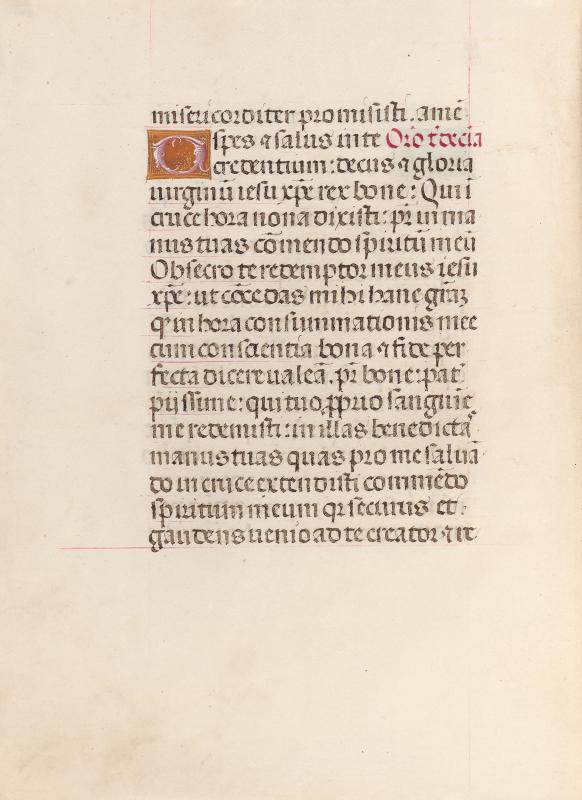 misericorditer promisisti. amē
O spes ⁊ salus in te Orō t̄decīa
credentium: decus ⁊ gloria
uirginū iesu xp̄e rex bone: Qui ī
cruce hora nona dixisti: pr̄ in ma
nus tuas cōmendo sp̄iritū meū
Obsecro te redemptor meus iesu
xp̄e: ut cōcedas mihi hanc grāꝫ
ꝙ in hora consummationis mee
cum conscientia bona ⁊ fide per
fecta dicere ualeā. pr̄ bone: pat̄
pijssime: qui tuo ꝓprio sanguīe
me redemisti: in illas benedictas
manus tuas quas pro me saluā
do in cruce extendisti commēdo
sp̄iritum meum qr̄ securus et
gaudens uenio ad te creator ⁊ re